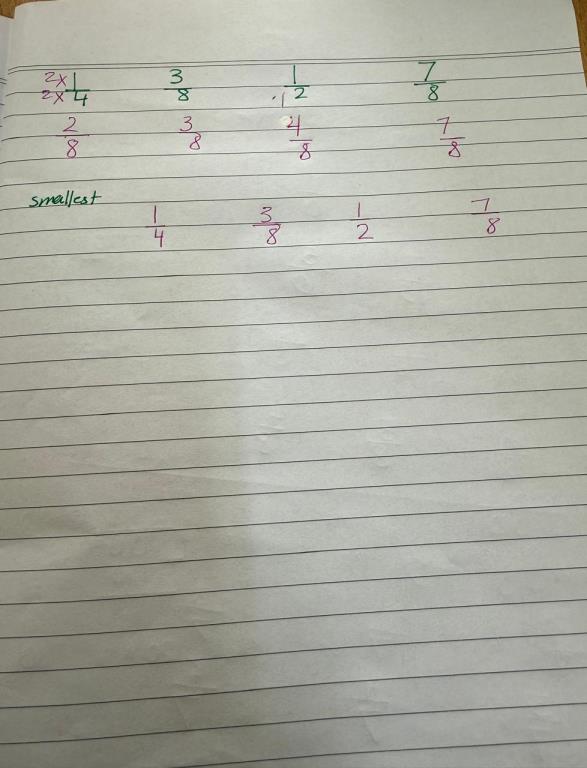 2×1/2×4 3/8 1/2 7/8
2/8 3/8 4/8 7/8
smallest
1/4 3/8 1/2 7/8